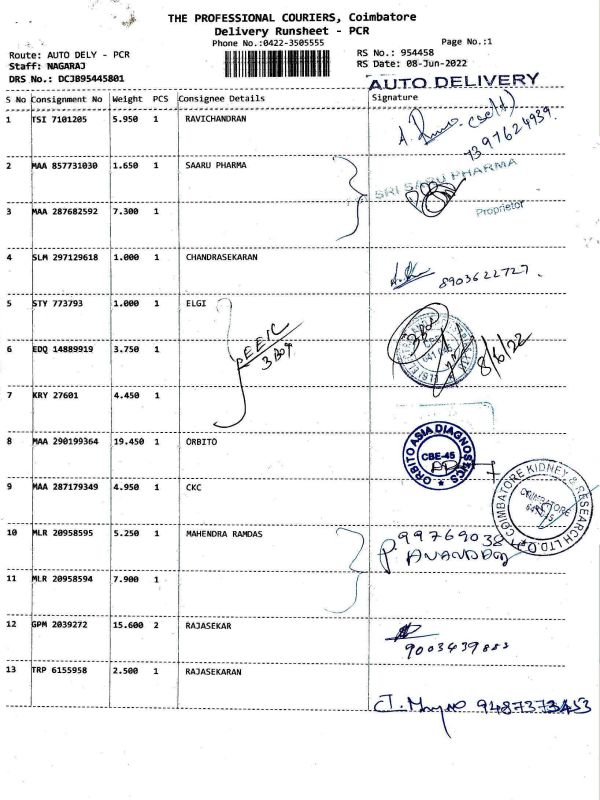 THE PROFESSIONAL COURIERS, Coimbatore
Delivery Runsheet - PCR
Phone No.:0422-3505555
Page No.:1
Route: AUTO DELY - PCR
RS No.: 954458
Staff: NAGARAJ
RS Date: 08-Jun-2022
DRS No.: DCJB95445801
AUTO DELIVERY
S No Consignment No Weight PCS Consignee Details Signature
1 TSI 7101205 5.950 1 RAVICHANDRAN
1397624939.
2 MAA 857731030 1.650 1 SAARU PHARMA
SRI SARU PHARMA
3 MAA 287682592 7.300 1
Proprietor
4 SLM 297129618 1.000 1 CHANDRASEKARAN
8903622727.
5 STY 773793 1.000 1 ELGI
EEIC
3 Box
6 EDQ 14889919 3.750 1
8/6/22
7 KRY 27601 4.450 1
8 MAA 290199364 19.450 1 ORBITO
ORBITO ASIA DIAGNOSTICS
CBE-45
9 MAA 287179349 4.950 1 CKC
COIMBATORE KIDNEY & RESEARCH
COIMBATORE
10 MLR 20958595 5.250 1 MAHENDRA RAMDAS
99769038
11 MLR 20958594 7.900 1
12 GPM 2039272 15.600 2 RAJASEKAR
9003439888
13 TRP 6155958 2.500 1 RAJASEKARAN
9487373453